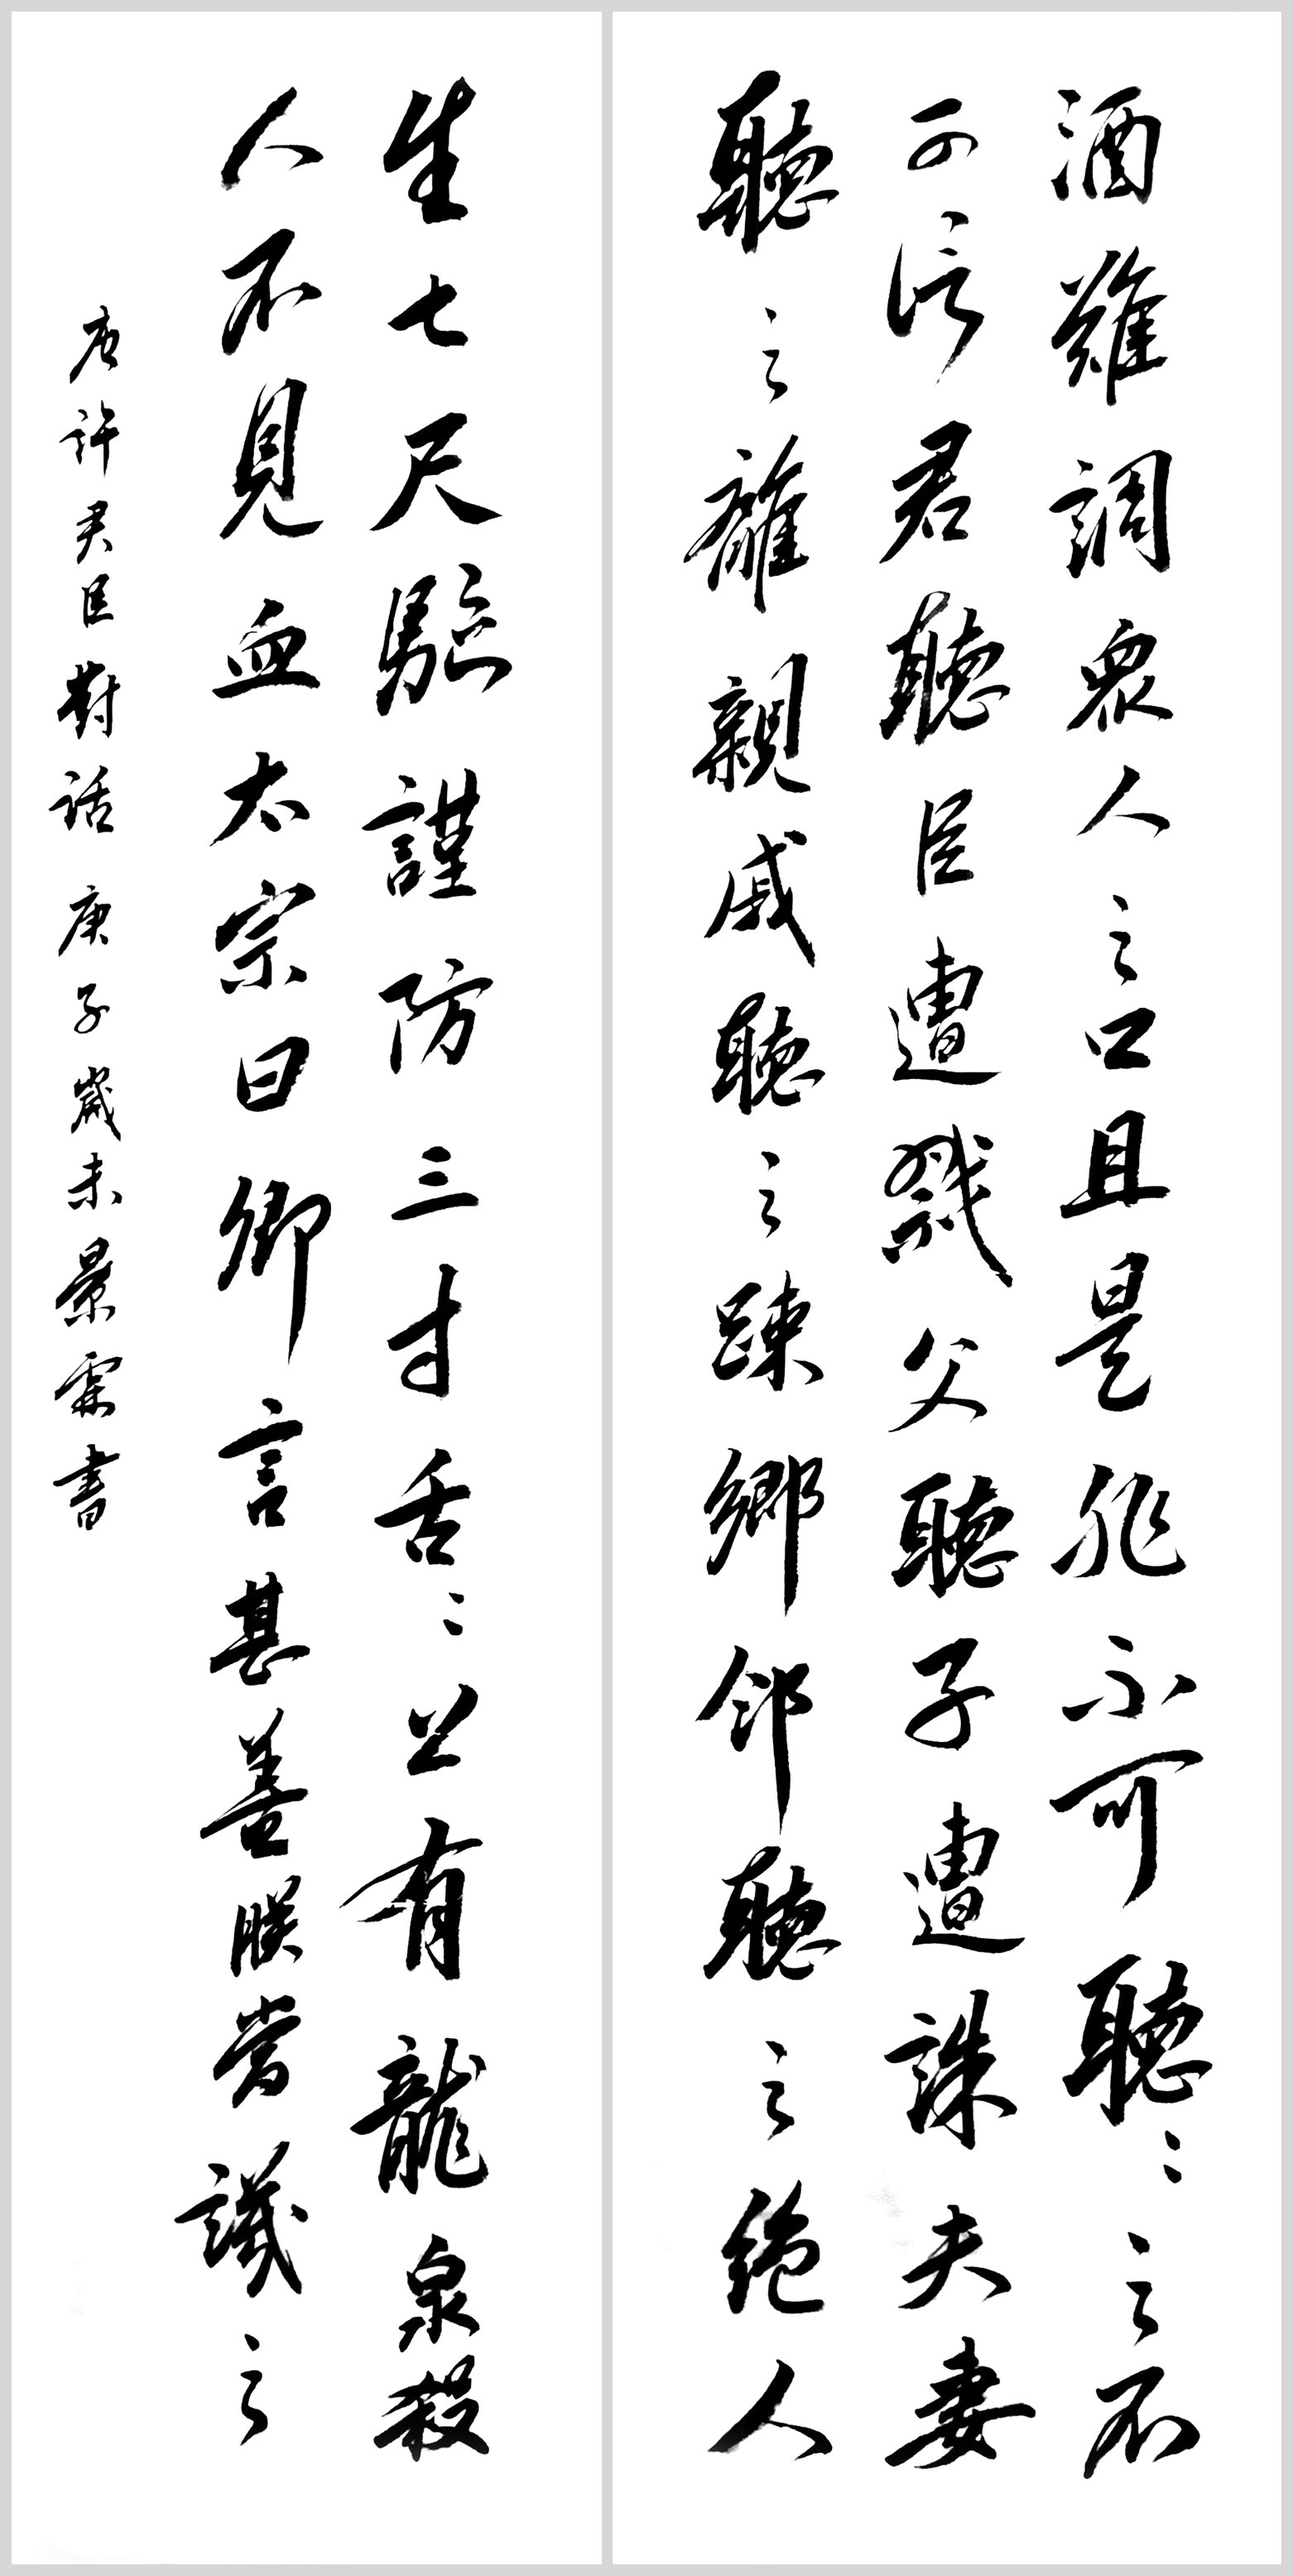 酒難調眾人之口且是非不可聽聽之不
可信君聽臣遭戮父聽子遭誅夫妻
聽之離親戚聽之踈鄉邻聽之绝人
生七尺駈謹防三寸舌舌上有龍泉殺
人不見血太宗曰卿言甚善朕當識之
唐許君臣對话 庚子歲末景霖書